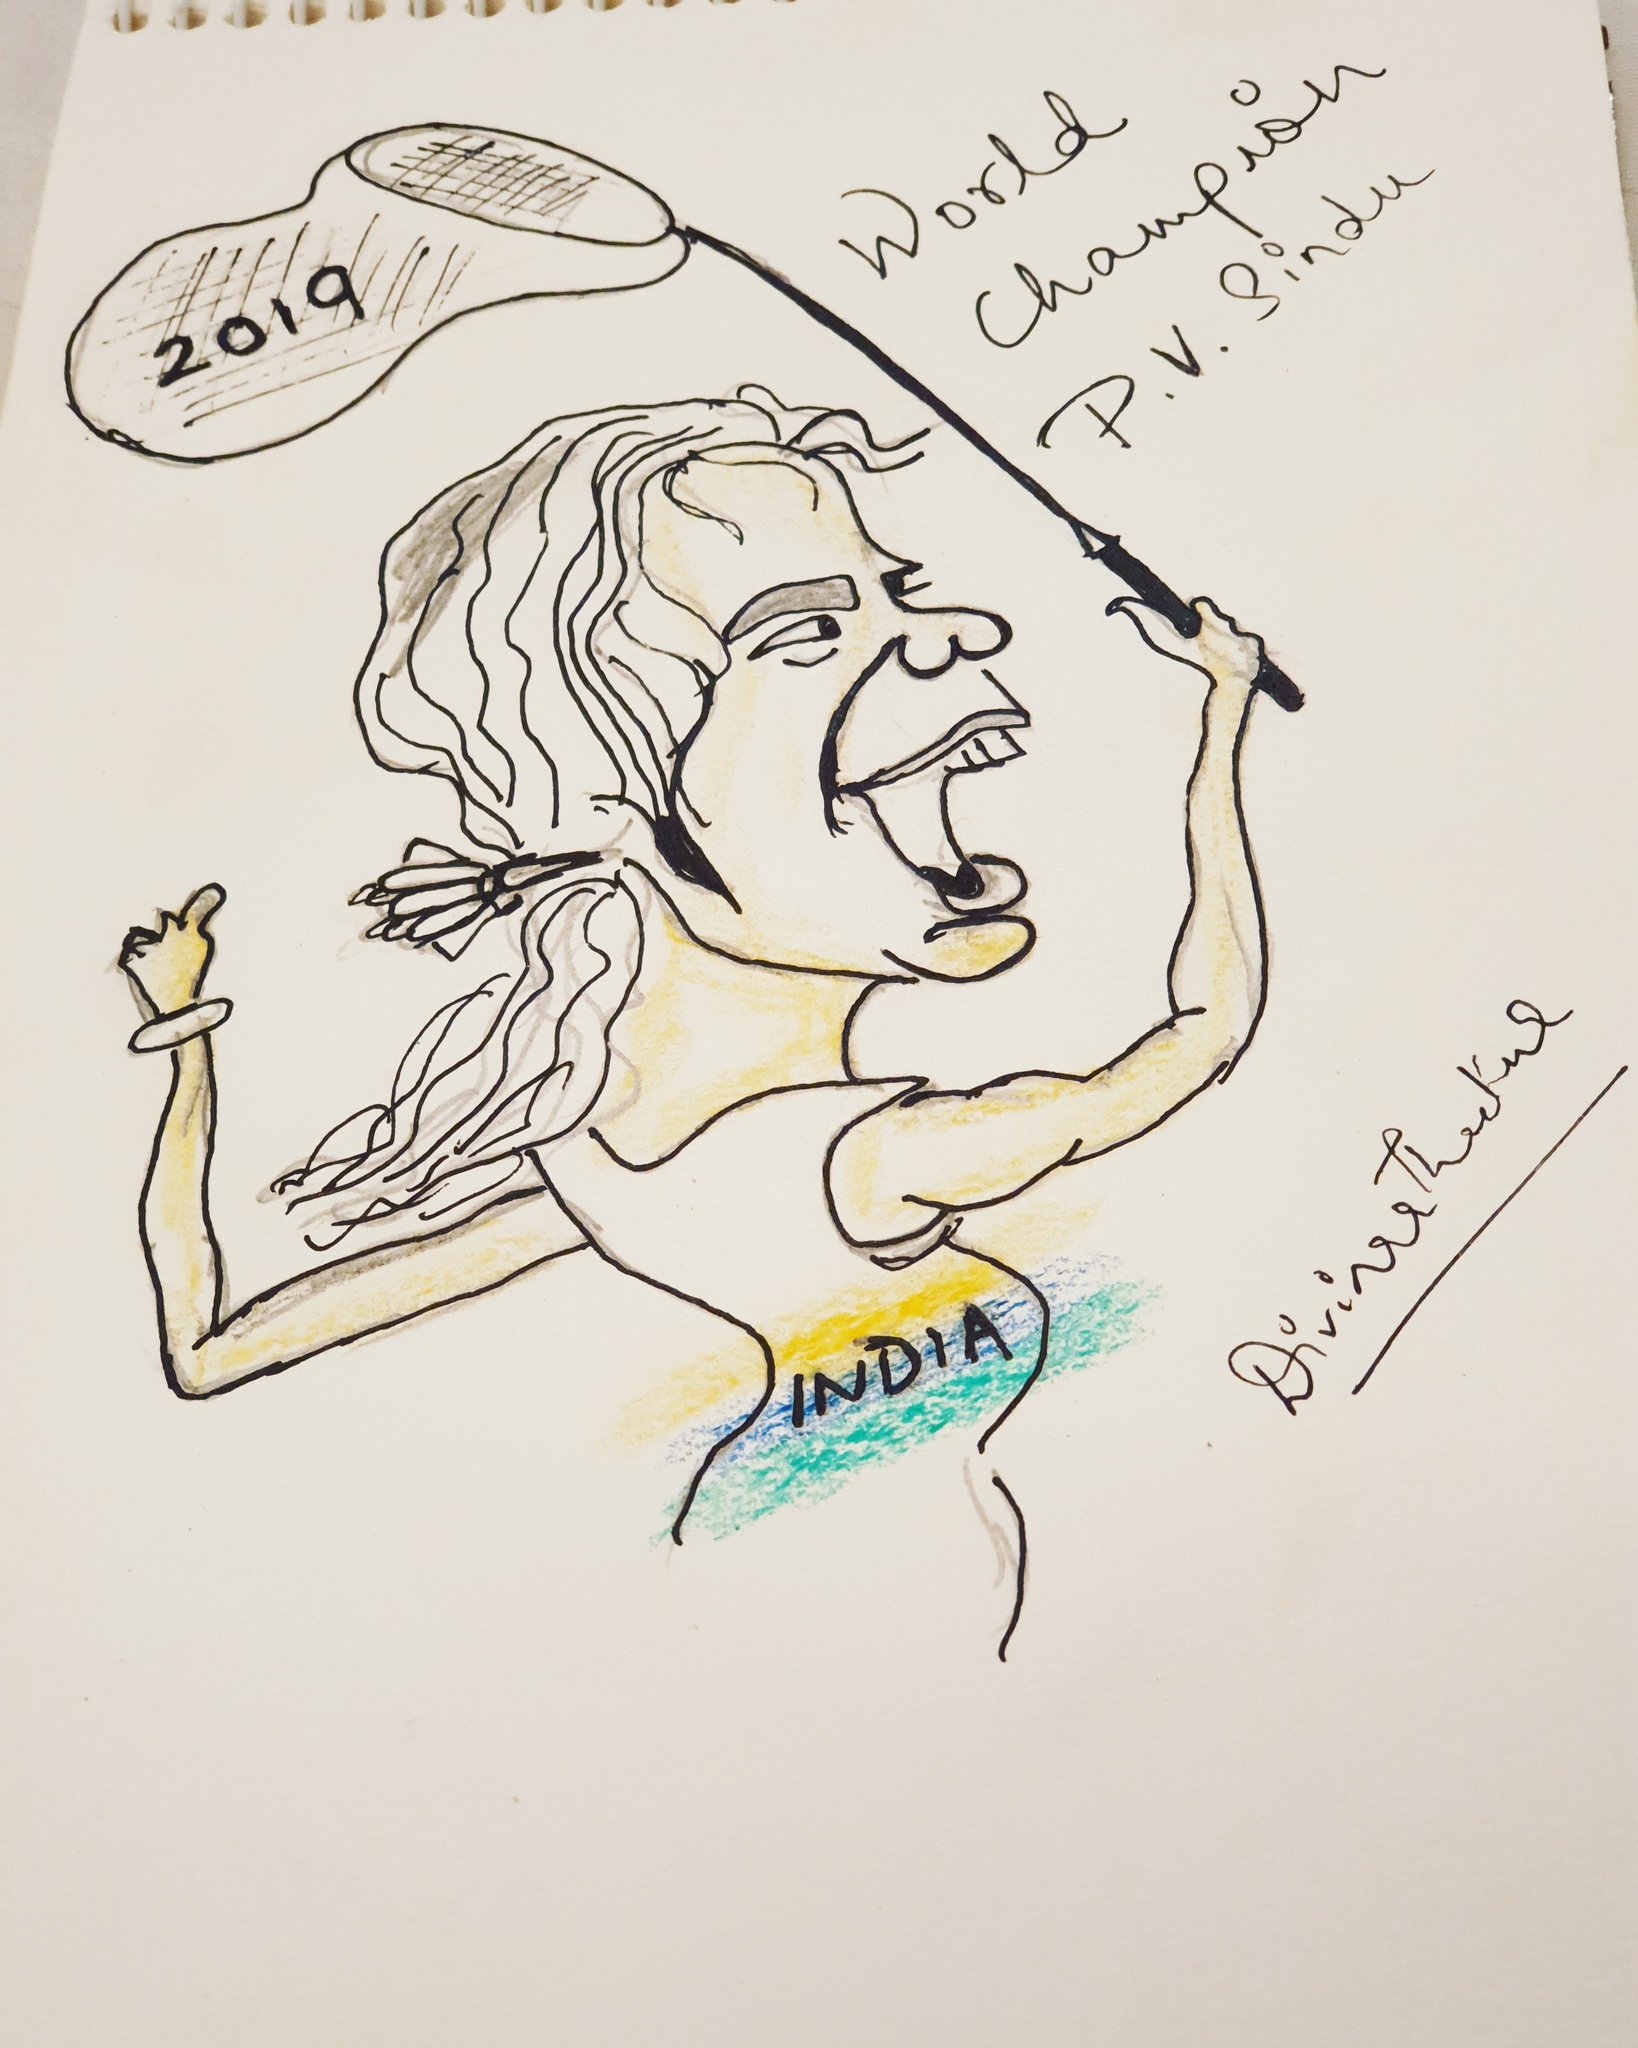 World
Champion
P.V. Sindu
2019
INDIA
Divine Thakur